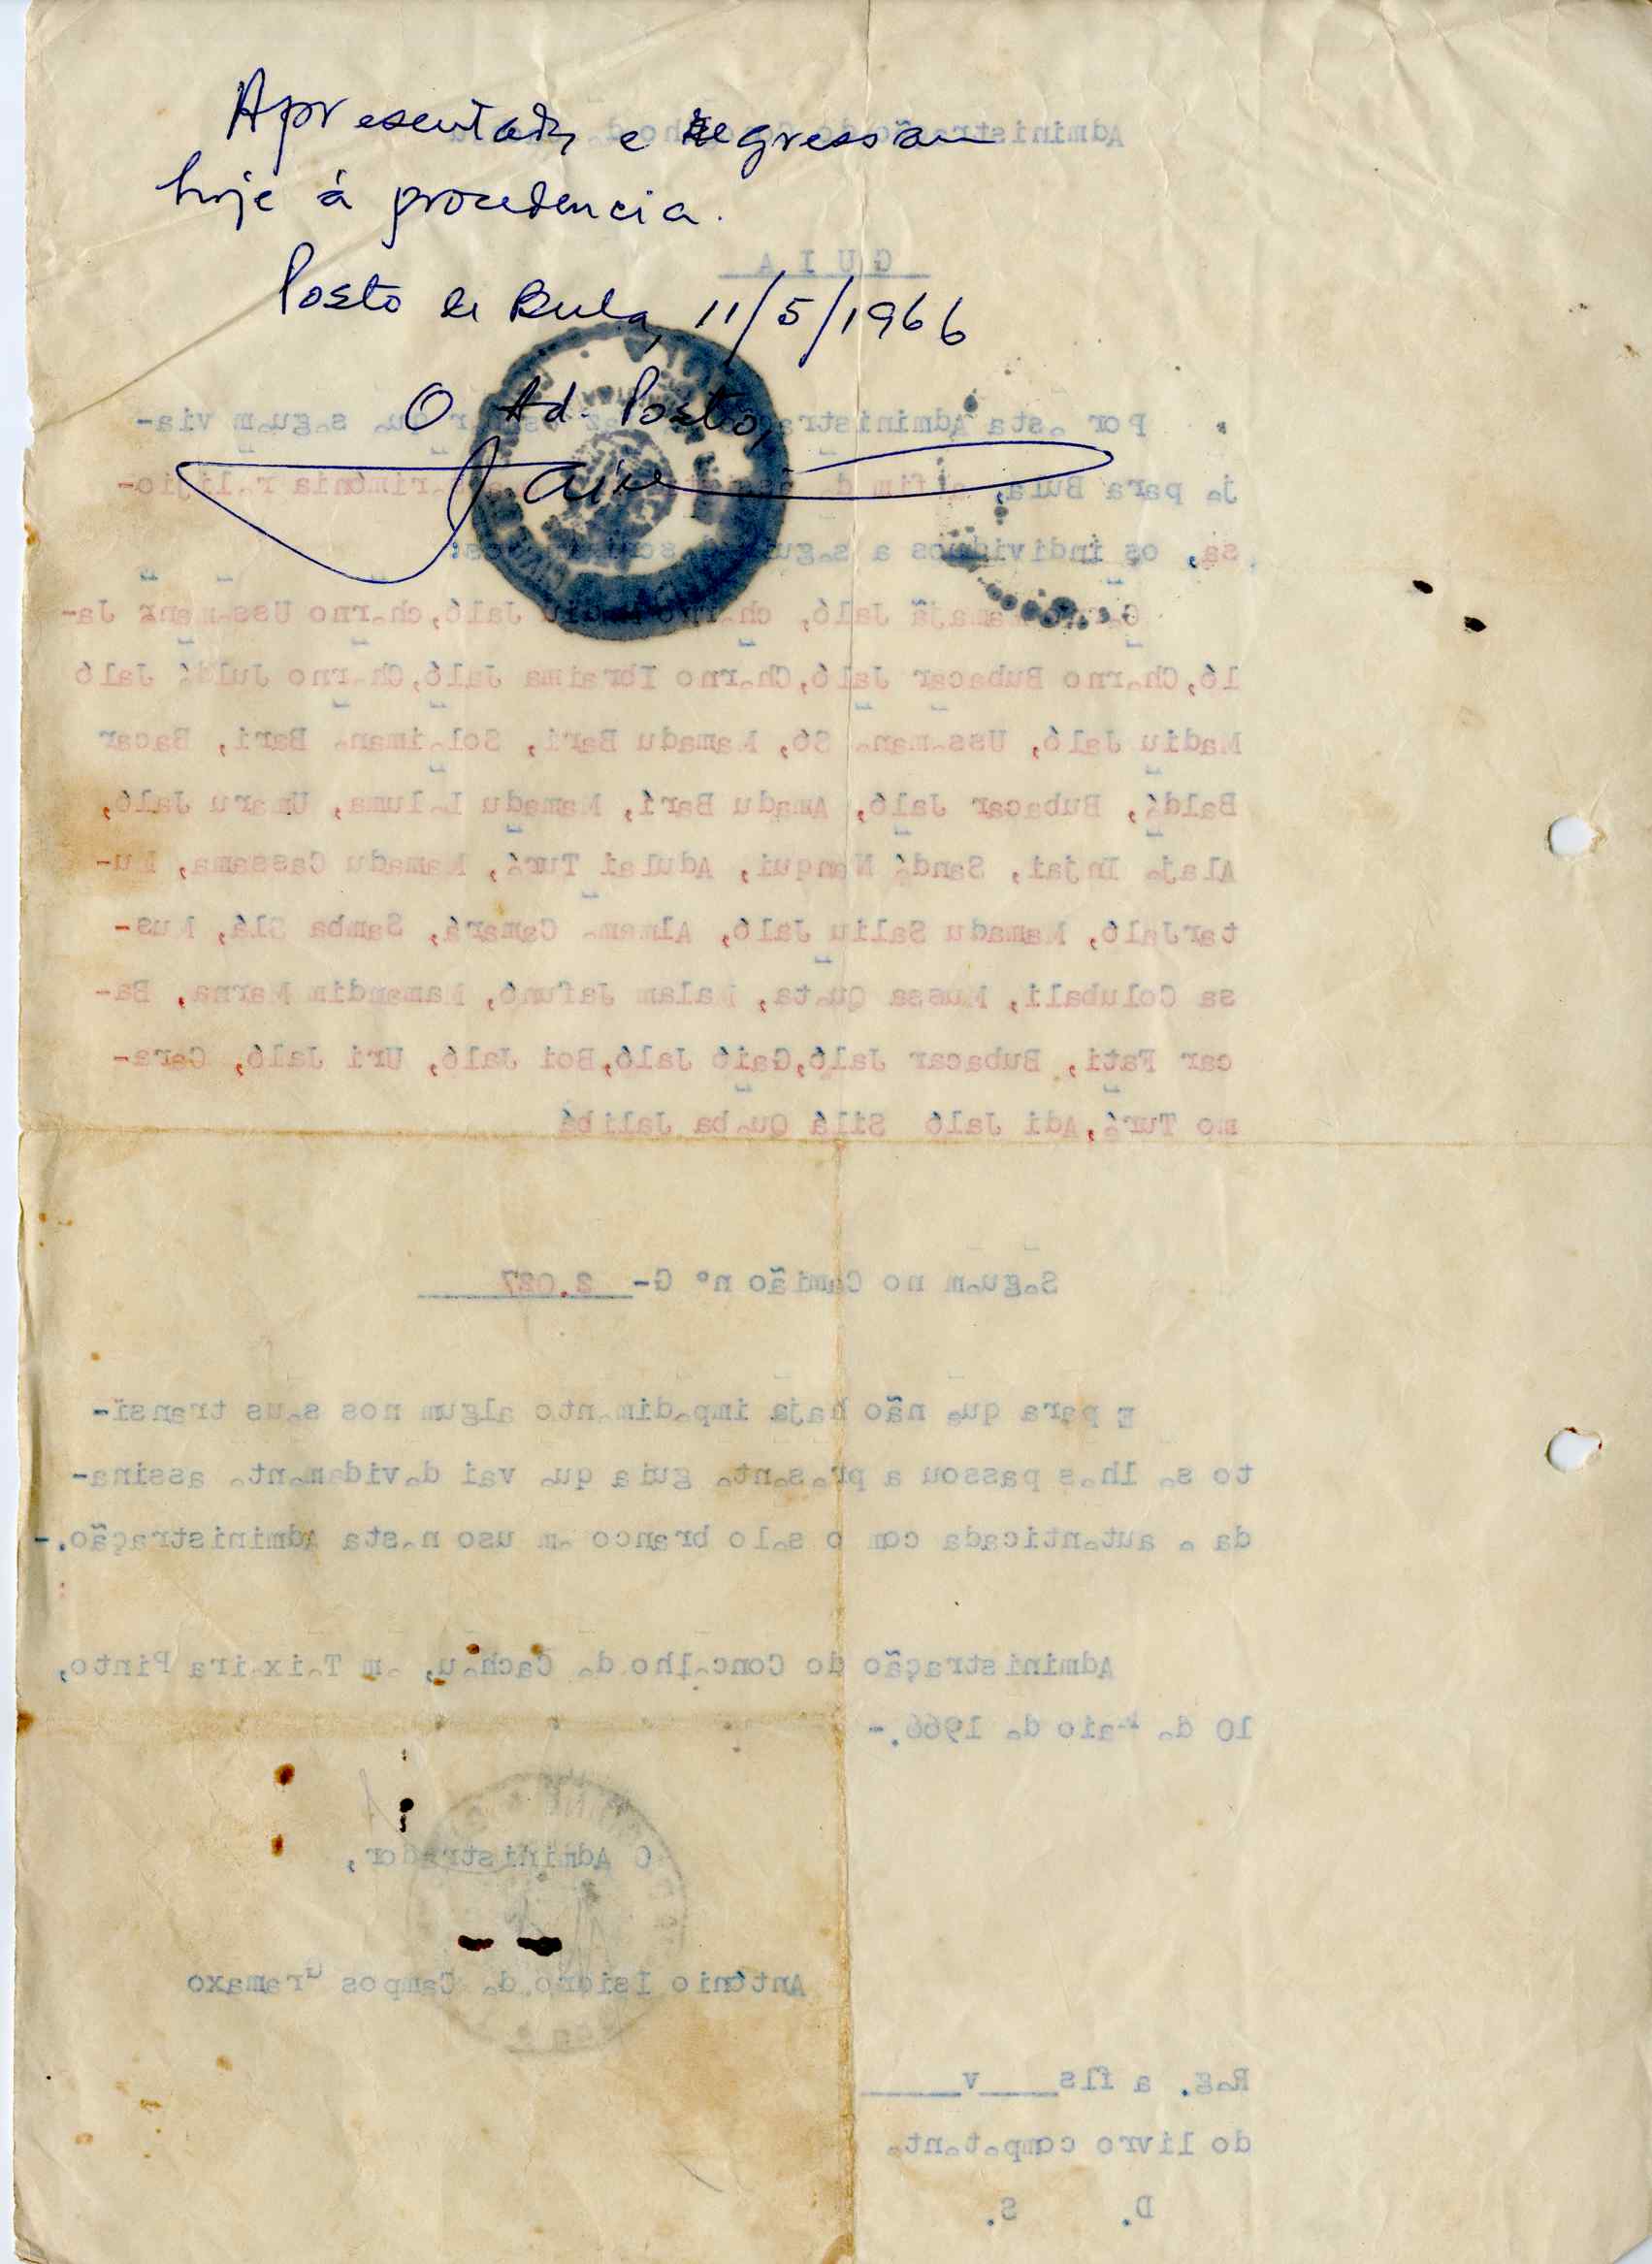 Apresentados e regressam
hoje á procedencia.
Posto de Bula, 11/5/1966
O Ad. Posto,
Jaime
Administração do Concelho de
GUIA
Por esta Administração se faz saber que seguem via-
je para Bula, afim de cerimónia relijio-
sa, os indivíduos a seguir
Jaló, Jaló, cherno Ussumane Ja-
ló, Cherno Bubacar Jaló, Cherno Ibraima Jaló, Cherno Juldé Jaló
Madiu Jaló, Ussumane Só, Mamadu Bari, Soleimane Bari, Bacar
Baldé, Bubacar Jaló, Amadu Bari, Mamadu Laluma, Umaru Jaló,
Alaje Injai, Sandé Nanqui, Adulai Turé, Mamadu Cassama, Mu-
tarJaló, Mamadu Saliu Jaló, Almame Camará, Samba Slá, Mus-
sa Colubali, Mussa Queta, Malam Jafunó, Mamandim Marna, Ba-
car Fati, Bubacar Jaló, Gaió Jaló, Boi Jaló, Uri Jaló, Cera-
mo Turé, Adi Jaló Silá Queba Jalibá
Seguem no Camião nº G- 2.027
E para que não haja impedimento algum nos seus transi-
to se lhes passou a presente guia que vai devidamente assina-
da e autenticada com o selo branco em uso nesta Administração.-
Administração do Concelho de Cacheu, em Teixeira Pinto,
10 de Maio de 1966.-
O Administrador,
António Isidro de Campos Gramaxo
Reg. a fls____v____
do livro competente
D. S.